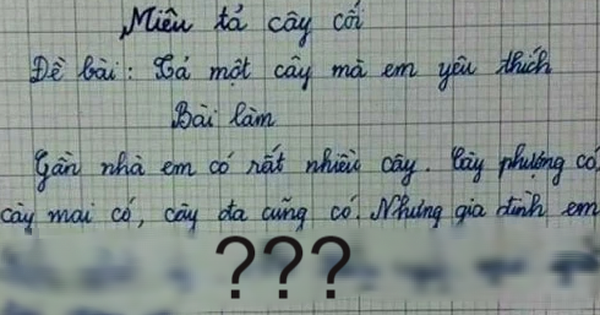 Miêu tả cây cối
Đề bài: Tả một cây mà em yêu thích
Bài làm
Gần nhà em có rất nhiều cây. Cây phượng có,
cây mai có, cây đa cũng có. Nhưng gia đình em
???